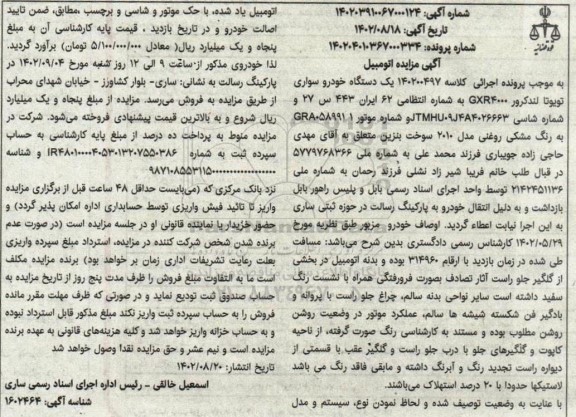 شماره آگهی: ۱۴۰۲۰۳۹۱۰۰۶۷۰۰۰۱۲۴
تاریخ آگهی: ۱۴۰۲/۰۸/۱۸
شماره پرونده: ۱۴۰۲۰۴۰۱۰۳۶۷۰۰۰۳۳۴
آگهی مزایده اتومبیل
به موجب پرونده اجرائی کلاسه ۱۴۰۲۰۰۴۹۷ یک دستگاه خودرو سواری
تویوتا لندکرور GXR۴۰۰۰ به شماره انتظامی ۶۲ ایران ۴۴۳ س ۲۷ و
شماره شاسی JTMHU۰۹J۴A۴۰۲۶۶۶۳و شماره موتور ۱GRA۰۵۸۹۹۱
به رنگ مشکی روغنی مدل ۲۰۱۰ سوخت بنزین متعلق به آقای مهدی
حاجی زاده جویباری فرزند محمد علی به شماره ملی ۵۷۷۹۷۶۸۳۶۶
در قبال طلب خانم فریبا شیر زاد نشلی فرزند رحمان به شماره ملی
۲۱۴۲۴۵۱۱۳۶ توسط واحد اجرای اسناد رسمی بابل و پلیس راهور بابل
بازداشت و به دلیل انتقال خودرو به پارکینگ رسالت در حوزه ثبتی ساری
به این اجرا نیابت اعطاء گردید. اوصاف خودرو مزبور طبق نظریه مورخ
۱۴۰۲/۰۵/۲۹ کارشناس رسمی دادگستری بدین شرح می‌باشد: مسافت
طی شده در زمان بازدید با ارقام ۳۱۴۹۶۰ بوده و بدنه اتومبیل در بخشی
از گلگیر جلو راست آثار تصادف بصورت فرورفتگی همراه با نشست رنگ
سفید داشته است سایر نواحی بدنه سالم، چراغ جلو راست با پروانه و
بادگیر فن شکسته شیشه ها سالم، عملکرد موتور در وضعیت روشن
روشن مطلوب بوده و مستند به کارشناسی رنگ صورت گرفته، از ناحیه
کاپوت و گلگیرهای جلو با درب جلو راست و گلگیر عقب با قسمتی از
دیواره راست تجدید رنگ و آبرنگ داشته و مابقی فاقد رنگ می باشد
لاستیکها حدودا با ۲۰ درصد استهلاک می‌باشند.
با عنایت به وضعیت توصیف شده و لحاظ نمودن نوع، سیستم و مدل
اتومبیل یاد شده، با حک موتور و شاسی و برچسب ،مطابق، ضمن تایید
اصالت خودرو و در تاریخ بازدید ، قیمت پایه کارشناسی آن به مبلغ
پنجاه و یک میلیارد ریال( معادل ۵/۱۰۰/۰۰۰/۰۰۰ تومان) برآورد گردید.
لذا خودروی مذکور از ساعت ۹ الی ۱۲ روز شنبه مورخ ۱۴۰۲/۰۹/۰۴ در
پارکینگ رسالت به نشانی: ساری- بلوار کشاورز - خیابان شهدای محراب
از طریق مزایده به فروش می‌رسد. مزایده از مبلغ پنجاه و یک میلیارد
ریال شروع و به بالاترین قیمت پیشنهادی فروخته می‌شود. شرکت در
مزایده منوط به پرداخت ده درصد از مبلغ پایه کارشناسی به حساب
سپرده ثبت به شماره IR۴۸۰۱۰۰۰۰۴۰۵۳۰۱۳۲۰۷۵۵۰۳۸۶ و شناسه
۹۸۷۱۰۸۵۵۳۱۱۵۰۰۰۰۰۰۰۰۰۰۰۰۰۰۰۰۰
نزد بانک مرکزی که (می‌بایست حداقل ۴۸ ساعت قبل از برگزاری مزایده
واریز تا تائید فیش واریزی توسط حسابداری اداره امکان پذیر گردد) و
حضور خریدار یا نماینده قانونی او در جلسه مزایده است (در صورت عدم
برنده شدن شخص شرکت کننده در مزایده، استرداد مبلغ سپرده واریزی
بعلت رعایت تشریفات اداری زمان بر خواهد بود) برنده مزایده مکلف
است ما به التفاوت مبلغ فروش را ظرف مدت پنج روز از تاریخ مزایده به
حساب صندوق ثبت تودیع نماید و در صورتی که ظرف مهلت مقرر مانده
فروش را به حساب سپرده ثبت واریز نکند مبلغ مذکور قابل استرداد نبوده
و به حساب خزانه واریز خواهد شد و کلیه هزینه‌های قانونی به عهده برنده
مزایده است و نیم عشر و حق مزایده نقداً وصول خواهد شد
تاریخ انتشار: ۱۴۰۲/۰۸/۲۰
اسمعیل خالقی - رئیس اداره اجرای اسناد رسمی ساری
شناسه آگهی: ۱۶۰۲۴۶۴